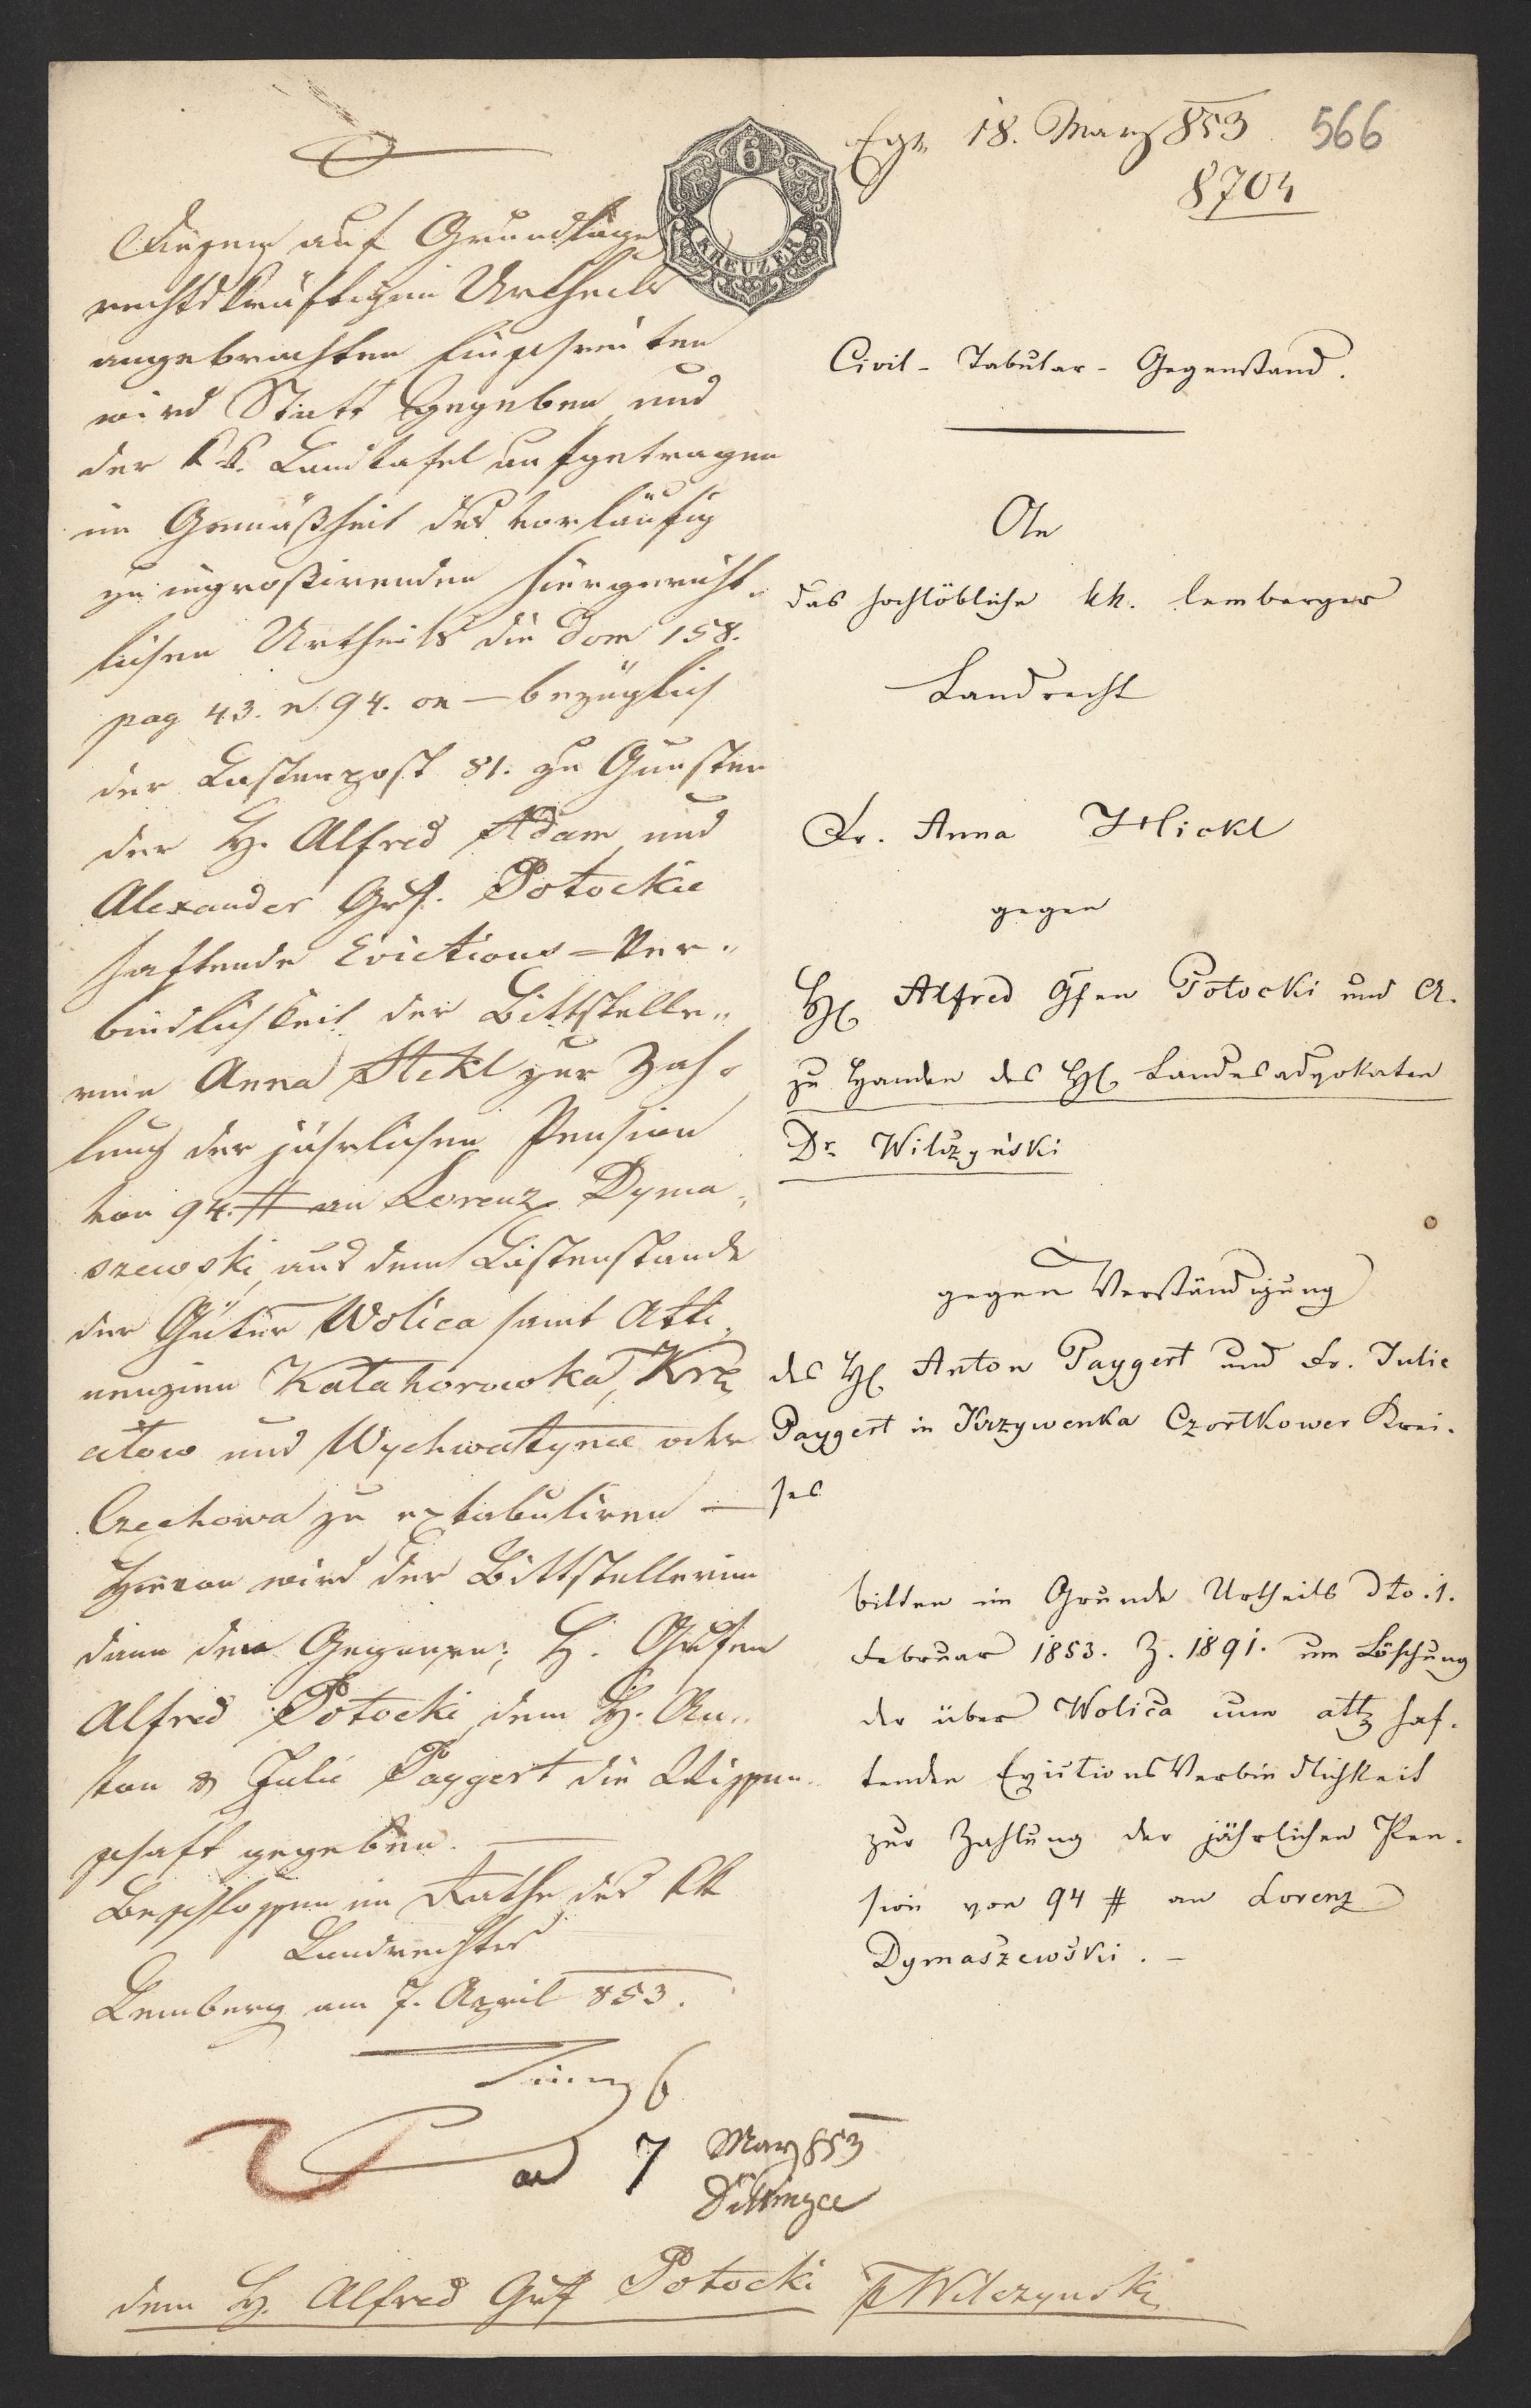 18. März 853
566
8704
6
KREUZER
auf Grundlage
rechtskräftigen Urtheils
angebrachten Einschreiten
wird Statt gegeben und
der k.k. Landtafel aufgetragen
in Gemäßheit des vorläufig
zu ingroßirenden hiergericht-
lichen Urtheils die dom 158.
pag 43. n 94. on — bezüglich
der Lastenpost 81. zu Gunsten
der H. Alfred Adam und
Alexander Grf. Potockie
haftende Evictions=Ver„
bindlichkeit der Bittstelle„
rin Anna Itekl zur Zah„
lung der jährlichen Pension
von 94. # an Lorenz Dyma„
szewski, aus dem Lastenstande
der Güter Wolica samt Atti„
nenzien Katahorowka,
und Wychwatynce oder
Czechowa zu extabuliren —
Hievon wird der Bittstellerinn
dann dem Gegner; H. Grafen
Alfred Potocki, dem H. An„
ton & Julie Paygert die Wissen„
schaft gegeben. —
Beschlossen im Rathe des kk
Landrechtes
Lemberg am 7. April 853.
7 März 853
dem H. Alfred Grf Potocki
Wilczynski
Civil - Tabular - Gegenstand.
An
das hochlöbliche kk. lemberger
Landrecht
Fr. Anna Hickl
gegen
H Alfred Gfen Potocki und A.
zu Handen des H Landesadvokaten
Dr Wilczyński
gegen Verständigung
des H Anton Paygert und Fr. Julie
Paygert in Krzywenka Czortkower Krei-
ses
bitten im Grunde Urtheils dto. 1.
Februar 1853. Z. 1891. um Löschung
der über Wolica cum attz haf-
tenden EvictionsVerbindlichkeit
zur Zahlung der jährlichen Pen-
sion von 94 # an Lorenz
Dymaszewski. –